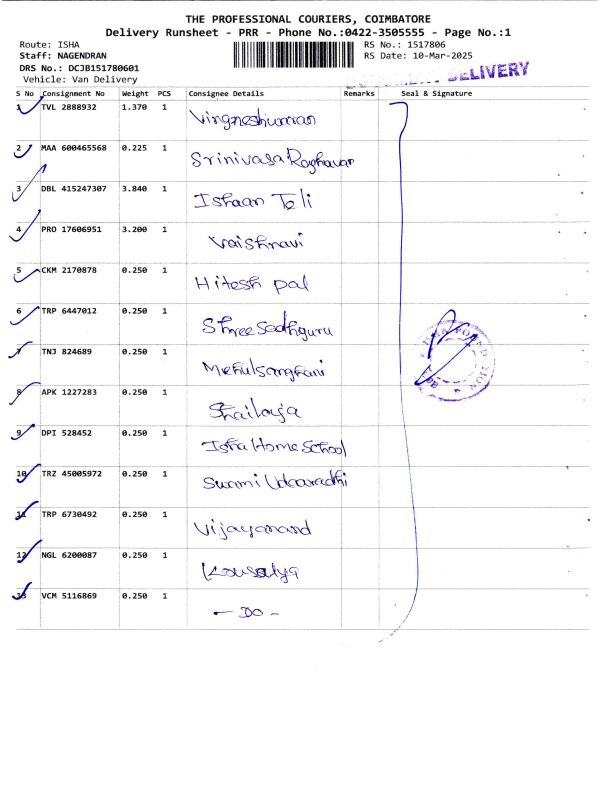 THE PROFESSIONAL COURIERS, COIMBATORE
Delivery Runsheet - PRR - Phone No.:0422-3505555 - Page No.:1
Route: ISHA RS No.: 1517806
Staff: NAGENDRAN RS Date: 10-Mar-2025
DRS No.: DCJB151780601
Vehicle: Van Delivery
DELIVERY
S No Consignment No Weight PCS Consignee Details Remarks Seal & Signature
1 TVL 2888932 1.370 1 Vingneshwaran
2 MAA 600465568 0.225 1 Srinivasa Raghavan
3 DBL 415247307 3.840 1 Ishaan Teli
4 PRO 17606951 3.200 1 Vaishnavi
5 CKM 2170878 0.250 1 Hitesh pal
6 TRP 6447012 0.250 1 Shree Sadhguru
7 TNJ 824689 0.250 1 Mehulsanghani
8 APK 1227283 0.250 1 Shailaja
9 DPI 528452 0.250 1 Isha Home School
10 TRZ 45005972 0.250 1 Swami
11 TRP 6730492 0.250 1 Vijayanand
12 NGL 6200087 0.250 1 Kousalya
13 VCM 5116869 0.250 1 - DO -